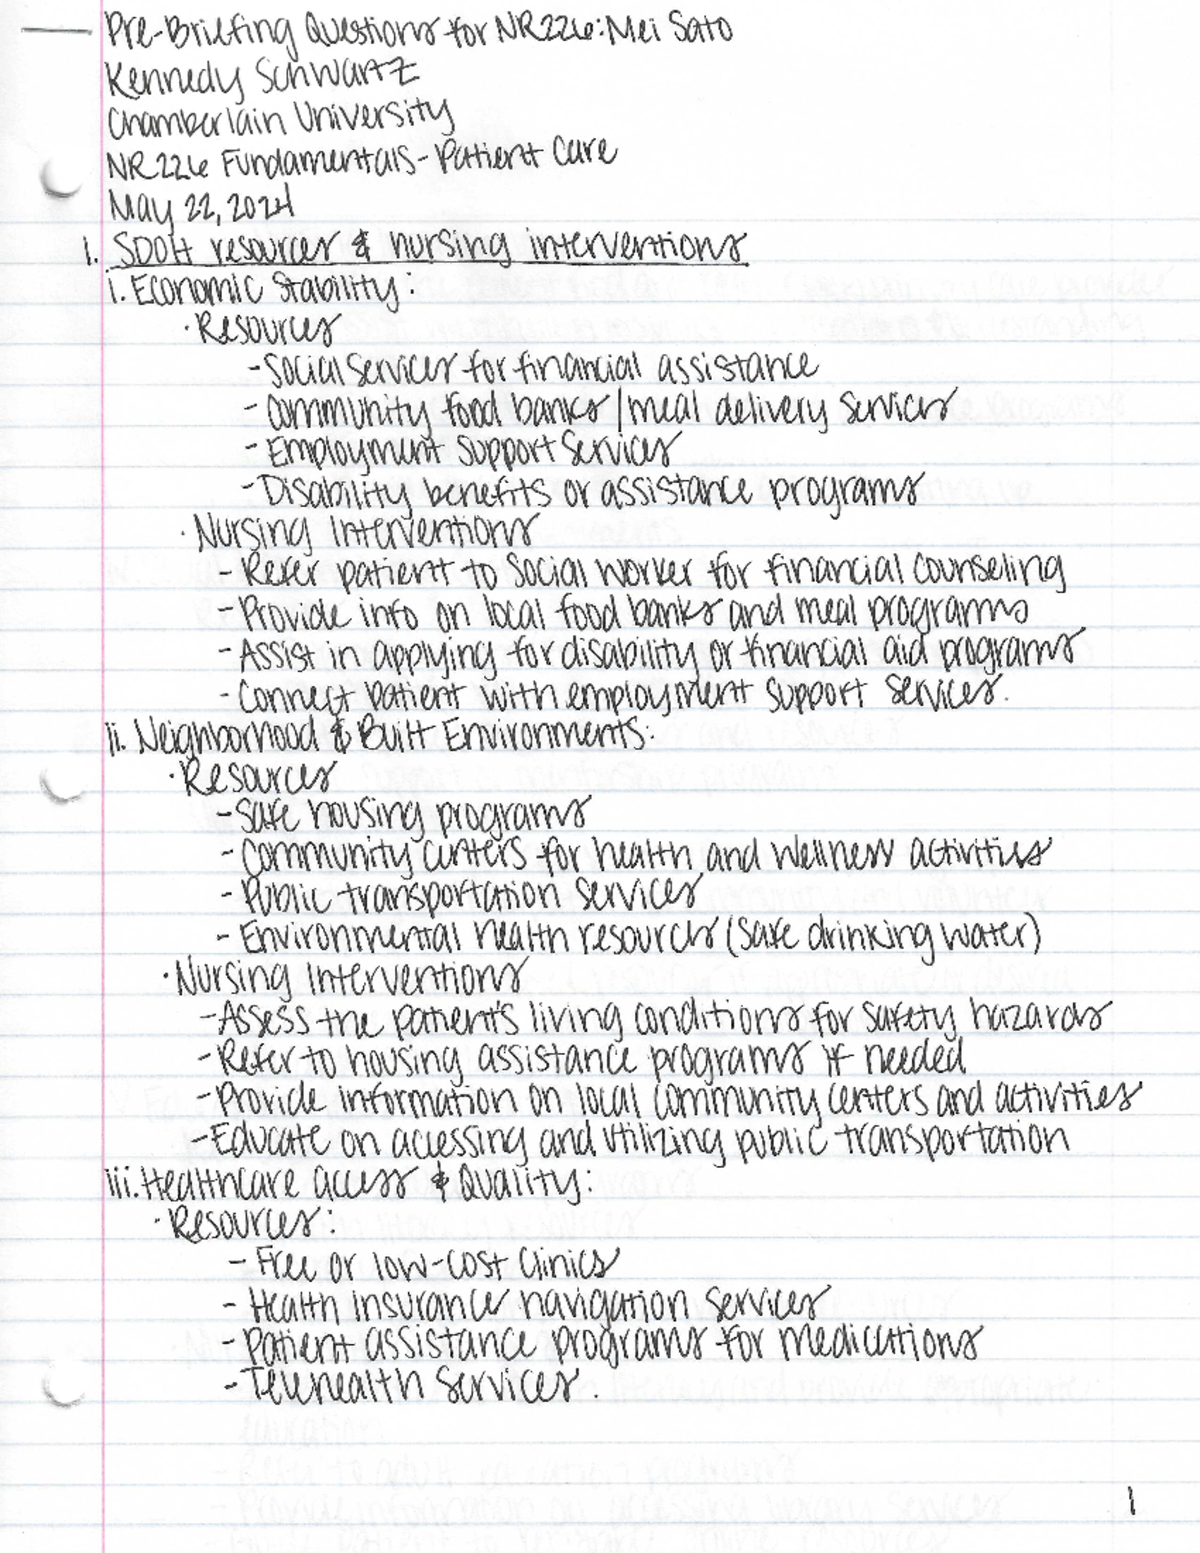 Pre-Briefing Questions for NR226: Mei Sato
Kennedy Schwartz
Chamberlain University
NR226 Fundamentals - Patient Care
May 22, 2024
1. SDOH resources & nursing interventions
i. Economic Stability:
· Resources
- Social Services for financial assistance
- Community food banks / meal delivery services
- Employment support services
- Disability benefits or assistance programs
· Nursing Interventions
- Refer patient to social worker for financial counseling
- Provide info on local food banks and meal programs
- Assist in applying for disability or financial aid programs
- Connect patient with employment support services.
ii. Neighborhood & Built Environments:
· Resources
- Safe housing programs
- Community centers for health and wellness activities
- Public transportation services
- Environmental health resources (safe drinking water)
· Nursing Interventions
- Assess the patient's living conditions for safety hazards
- Refer to housing assistance programs if needed
- Provide information on local community centers and activities
- Educate on accessing and utilizing public transportation
iii. Healthcare access & Quality:
· Resources:
- Free or low-cost clinics
- Health insurance navigation services
- Patient assistance programs for medications
- Telehealth Services.
1